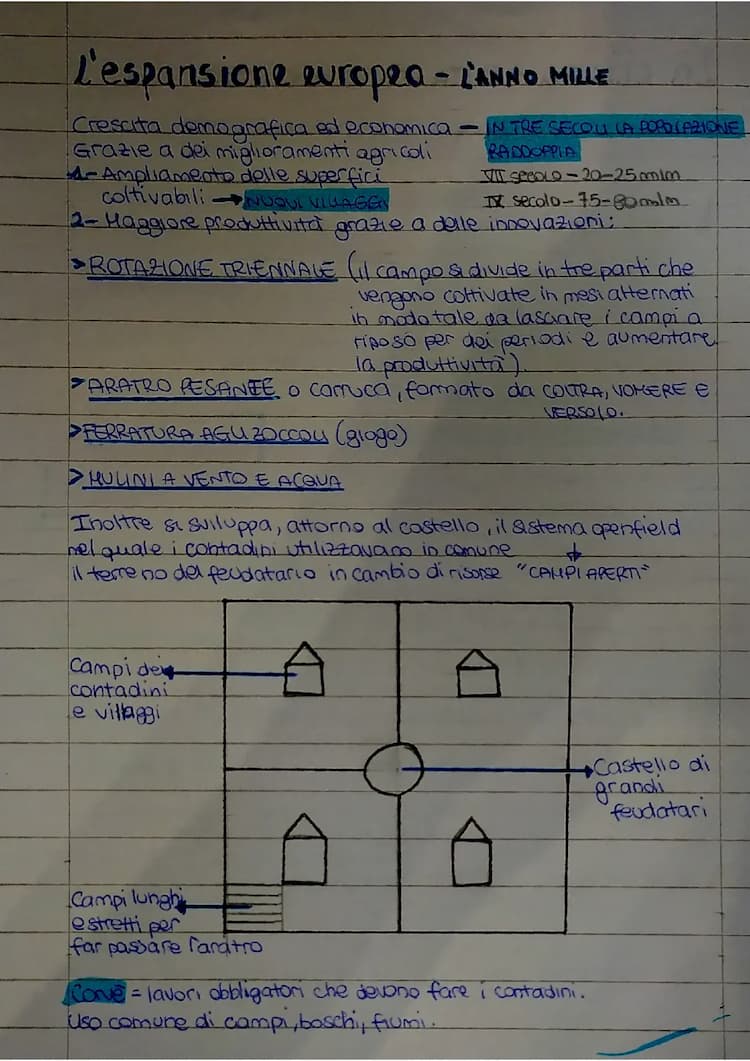 L'espansione europea - L'ANNO MILLE
Crescita demografica ed economica - IN TRE SECOLI LA POPOLAZIONE
Grazie a dei miglioramenti agricoli RADDOPPIA
1- Ampliamento delle superfici VII secolo - 20-25 mlm
coltivabili → NUOVI VILLAGGI IX secolo - 75-80 mlm
2- Maggiore produttività grazie a delle innovazioni:
>ROTAZIONE TRIENNALE (il campo si divide in tre parti che
vengono coltivate in mesi alternati
in modo tale da lasciare i campi a
riposo per dei periodi e aumentare
la produttività)
>ARATRO PESANTE o carruca, formato da COLTRA, VOMERE E
VERSOIO.
>FERRATURA AGLI ZOCCOLI (giogo)
>MULINI A VENTO E ACQUA
Inoltre si sviluppa, attorno al castello, il sistema openfield
nel quale i contadini utilizzavano in comune ↓
il terreno del feudatario in cambio di risorse "CAMPI APERTI"
Campi dei
contadini
e villaggi
Castello di
grandi
feudatari
Campi lunghi
e stretti per
far passare l'aratro
Corvè = lavori obbligatori che devono fare i contadini.
Uso comune di campi, boschi, fiumi.